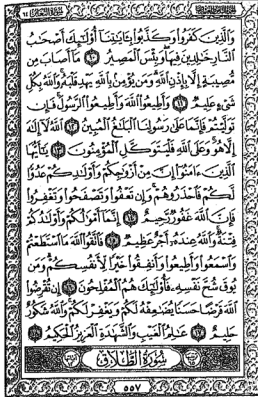 وَالَّذِينَ كَفَرُوا وَكَذَّبُوا بِآيَاتِنَا أُولَٰئِكَ أَصْحَابُ
النَّارِ خَالِدِينَ فِيهَا وَبِئْسَ الْمَصِيرُ ١٠ مَا أَصَابَ مِن
مُّصِيبَةٍ إِلَّا بِإِذْنِ اللَّهِ وَمَن يُؤْمِن بِاللَّهِ يَهْدِ قَلْبَهُ وَاللَّهُ بِكُلِّ
شَيْءٍ عَلِيمٌ ١١ وَأَطِيعُوا اللَّهَ وَأَطِيعُوا الرَّسُولَ فَإِن
تَوَلَّيْتُمْ فَإِنَّمَا عَلَىٰ رَسُولِنَا الْبَلَاغُ الْمُبِينُ ١٢ اللَّهُ لَا إِلَٰهَ
إِلَّا هُوَ وَعَلَى اللَّهِ فَلْيَتَوَكَّلِ الْمُؤْمِنُونَ ١٣ يَا أَيُّهَا
الَّذِينَ آمَنُوا إِنَّ مِنْ أَزْوَاجِكُمْ وَأَوْلَادِكُمْ عَدُوًّا
لَّكُمْ فَاحْذَرُوهُمْ وَإِن تَعْفُوا وَتَصْفَحُوا وَتَغْفِرُوا
فَإِنَّ اللَّهَ غَفُورٌ رَّحِيمٌ ١٤ إِنَّمَا أَمْوَالُكُمْ وَأَوْلَادُكُمْ
فِتْنَةٌ وَاللَّهُ عِندَهُ أَجْرٌ عَظِيمٌ ١٥ فَاتَّقُوا اللَّهَ مَا اسْتَطَعْتُمْ
وَاسْمَعُوا وَأَطِيعُوا وَأَنفِقُوا خَيْرًا لِّأَنفُسِكُمْ وَمَن
يُوقَ شُحَّ نَفْسِهِ فَأُولَٰئِكَ هُمُ الْمُفْلِحُونَ ١٦ إِن تُقْرِضُوا
اللَّهَ قَرْضًا حَسَنًا يُضَاعِفْهُ لَكُمْ وَيَغْفِرْ لَكُمْ وَاللَّهُ شَكُورٌ
حَلِيمٌ ١٧ عَالِمُ الْغَيْبِ وَالشَّهَادَةِ الْعَزِيزُ الْحَكِيمُ ١٨
سُورَةُ الطَّلَاقِ
٥٥٧